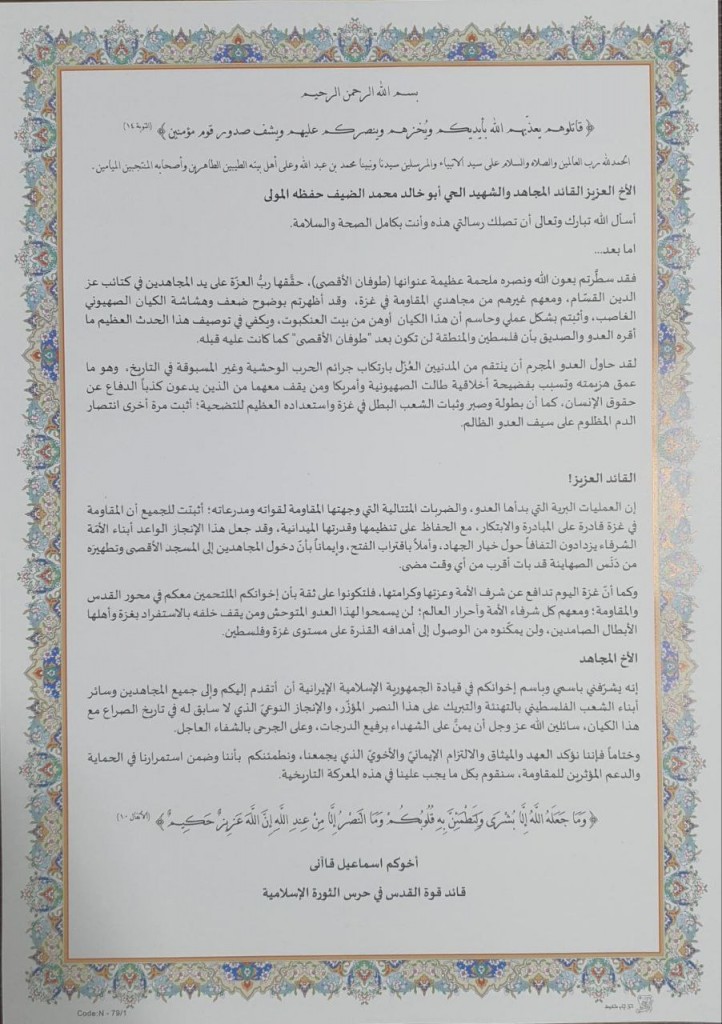 بسم الله الرحمن الرحيم
﴿ قاتلوهم يعذّبهم الله بأيديكم ويُخزهم وينصركم عليهم ويشف صدور قوم مؤمنين ﴾ (التوبة ١٤)
الحمدلله رب العالمين والصلاة والسلام على سيد الانبياء والمرسلين سيدنا ونبينا محمد بن عبد الله وعلى أهل بيته الطيبين الطاهرين وأصحابه المنتجبين الميامين.
الأخ العزيز القائد المجاهد والشهيد الحي أبو خالد محمد الضيف حفظه المولى
أسأل الله تبارك وتعالى أن تصلك رسالتي هذه وأنت بكامل الصحة والسلامة.
اما بعد...
فقد سطَّرتم بعون الله ونصره ملحمة عظيمة عنوانها (طوفان الأقصى)، حقَّقها ربُّ العزّة على يد المجاهدين في كتائب عز
الدين القسّام، ومعهم غيرهم من مجاهدي المقاومة في غزة، وقد أظهرتم بوضوح ضعف وهشاشة الكيان الصهيوني
الغاصب، وأثبتم بشكل عملي وحاسم أن هذا الكيان أوهن من بيت العنكبوت، ويكفي في توصيف هذا الحدث العظيم ما
أقره العدو والصديق بأن فلسطين والمنطقة لن تكون بعد "طوفان الأقصى" كما كانت عليه قبله.
لقد حاول العدو المجرم أن ينتقم من المدنيين العُزّل بارتكاب جرائم الحرب الوحشية وغير المسبوقة في التاريخ، وهو ما
عمق هزيمته وتسبب بفضيحة أخلاقية طالت الصهيونية وأمريكا ومن يقف معهما من الذين يدعون كذباً الدفاع عن
حقوق الإنسان، كما أن بطولة وصبر وثبات الشعب البطل في غزة واستعداده العظيم للتضحية؛ أثبت مرة أخرى انتصار
الدم المظلوم على سيف العدو الظالم.
القائد العزيز!
إن العمليات البرية التي بدأها العدو، والضربات المتتالية التي وجهتها المقاومة لقواته ومدرعاته؛ أثبتت للجميع أن المقاومة
في غزة قادرة على المبادرة والابتكار، مع الحفاظ على تنظيمها وقدرتها الميدانية، وقد جعل هذا الإنجاز الواعد أبناء الأمّة
الشرفاء يزدادون التفافاً حول خيار الجهاد، وأملاً باقتراب الفتح، وإيماناً بأنّ دخول المجاهدين إلى المسجد الأقصى وتطهيره
من دَنَس الصهاينة قد بات أقرب من أي وقت مضى.
وكما أنّ غزة اليوم تدافع عن شرف الأمة وعزتها وكرامتها، فلتكونوا على ثقة بأن إخوانكم الملتحمين معكم في محور القدس
والمقاومة؛ ومعهم كل شرفاء الأمة وأحرار العالم؛ لن يسمحوا لهذا العدو المتوحش ومن يقف خلفه بالاستفراد بغزة وأهلها
الأبطال الصامدين، ولن يمكّنوه من الوصول إلى أهدافه القذرة على مستوى غزة وفلسطين.
الأخ المجاهد
إنه يشرّفني باسمي وباسم إخوانكم في قيادة الجمهورية الإسلامية الإيرانية أن أتقدم إليكم وإلى جميع المجاهدين وسائر
أبناء الشعب الفلسطيني بالتهنئة والتبريك على هذا النصر المؤزّر، والإنجاز النوعيّ الذي لا سابق له في تاريخ الصراع مع
هذا الكيان، سائلين الله عز وجل أن يمنَّ على الشهداء برفيع الدرجات، وعلى الجرحى بالشفاء العاجل.
وختاماً فإننا نؤكد العهد والميثاق والالتزام الإيمانيّ والأخويّ الذي يجمعنا، ونطمئنكم بأننا وضمن استمرارنا في الحماية
والدعم المؤثرين للمقاومة، سنقوم بكل ما يجب علينا في هذه المعركة التاريخية.
﴿ وَمَا جَعَلَهُ اللَّهُ إِلَّا بُشْرَى وَلِتَطْمَئِنَّ بِهِ قُلُوبُكُمْ وَمَا النَّصْرُ إِلَّا مِنْ عِندِ اللَّهِ إِنَّ اللَّهَ عَزِيزٌ حَكِيمٌ ﴾ (الأنفال ١٠)
أخوكم اسماعيل قاآنى
قائد قوة القدس في حرس الثورة الإسلامية
Code:N - 79/1